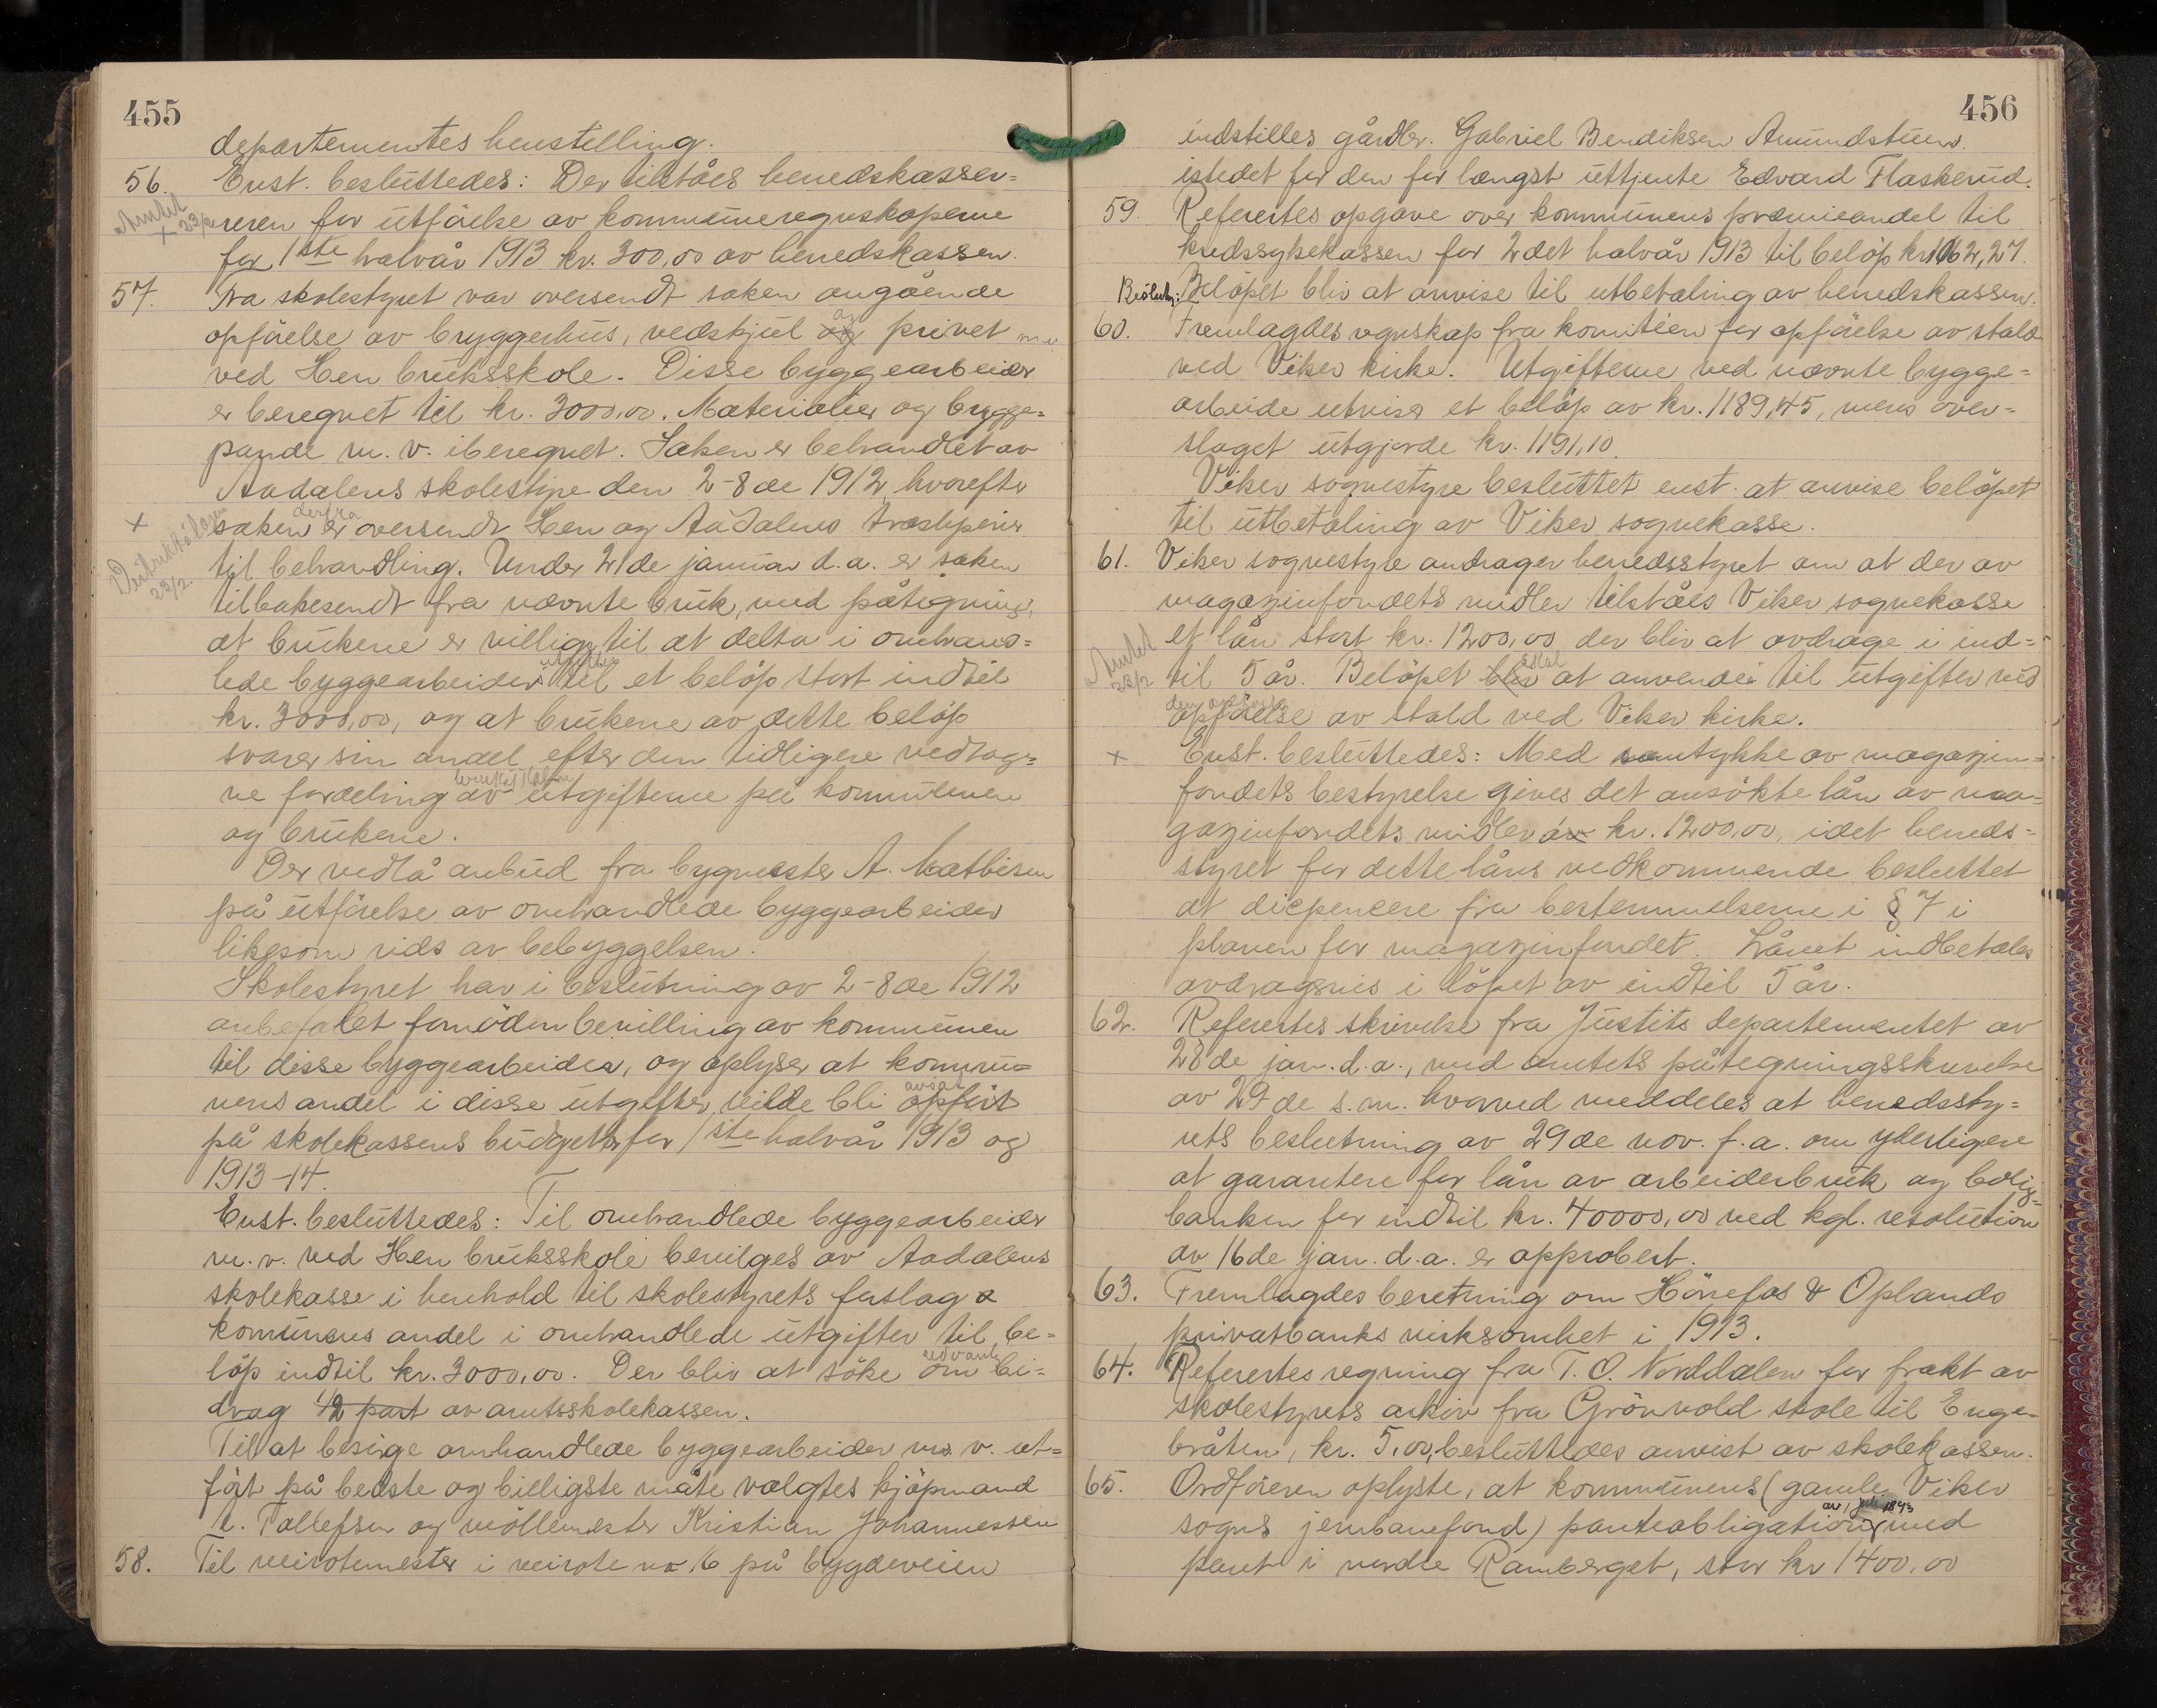 455
departementes henstilling.
56. Enst. besluttedes: Der tilståes herredskasser=
Amtet 23/2
reren for utförelse av kommuneregnskaperne
for 1ste halvår 1913 kr. 300,00 av herredskassen.
57. Fra skolestyret var oversendt saken angående
opförelse av bryggerhus, vedskjul og privet m.v.
ved Hen bruksskole. Disse byggearbeider
er beregnet til kr. 3000,00. Materialier og brygge=
pande m. v. iberegnet. Saken er behandlet av
Aadalens skolestyre den 2-8de 1912, hvorefter
saken derfra er oversendt Hen og Aadalens træsliperier
23/2.
til behandling. Under 21de januar d.a. er saken
tilbakesendt fra nævnte bruk, med påtegning,
at brukene er villige til at delta i omhand=
lede byggearbeiders utgifter til et belöp stort indtil
kr. 3000,00, og at brukene av dette belöp
svarer sin andel efter den tidligere vedtag=
ne fordeling av utgifterne på kommunen
og brukene.
Der vedlå anbud fra bygmester A. Mathisen
på utförelse av omhandlede byggearbeider
likesom rids av bebyggelsen.
Skolestyret har i beslutning av 2-8de 1912
anbefalet fornöden bevilling av kommunen
til disse byggearbeider, og oplyser at kommu=
nens andel i disse utgifter vilde bli avsat opfört
på skolekassens budgetter for 1ste halvår 1913 og
1913-14.
Enst. besluttedes: Til omhandlede byggearbeider
m.v. ved Hen bruksskole bevilges av Aadalens
skolekasse i henhold til skolestyrets forslag
kommunens andel i omhandlede utgifter til be=
löp indtil kr. 3000,00. Der bliv at söke om sedvanlig bi=
drag 1/2 part av amtsskolekassen.
Til at besörge omhandlede byggearbeider m. v. ut=
fört på bedste og billigste måte valgtes kjöpmand
L. Tollefsen og möllemester Kristian Johannessen
58. Til veirotemester i veirote no 16 på bygdeveien
456
indstilles gårdbr. Gabriel Bendiksen Amundstuen
istedet for den for længst uttjente Edvard Flaskerud.
59. Referertes opgave over kommunens præmieandel til
kredssykekassen for 2det halvår 1913 til belöp kr 1062,27.
Beslutn: Belöpet bliv at anvise til utbetaling av herredskassen.
60. Fremlagdes regnskap fra komitéen for opförelse av stald
ved Viker kirke. Utgifterne ved nævnte bygge=
arbeide utviser et belöp av kr. 1189,45, mens over=
slaget utgjorde kr. 1191,10.
Viker sognestyre besluttet enst. at anvise belöpet
til utbetaling av Viker sognekasse.
61. Viker sognestyre andrager herredsstyret om at der av
magazinfondets midler tilståes Viker sognekasse
et lån stort kr. 1200,00 der bliv at avdrage i ind=
Amtet 23/2
til 5 år. Belöpet bliv skal at anvendes til utgifter ved
den opförte opförelse av stald ved Viker kirke.
Enst. besluttedes: Med samtykke av magazin=
fondets bestyrelse gives det ansökte lån av ma=
gazinfondets midler av kr. 1200,00, idet herreds=
styret for dette låns vedkommende besluttet
at dispensere fra bestemmelserne i § 7 i
planen for magazinfondet. Lånet indbetales
avdragsvis i löpet av indtil 5 år.
62. Referertes skrivelse fra Justits departementet av
28de jan. d.a., med amtets påtegningsskrivelse
av 29de s.m. hvorved meddeles at herredssty=
rets beslutning av 29de nov. f.a. om yderligere
at garantere for lån av arbeiderbruk og bolig=
banken for indtil kr. 40000,00 ved kgl. resolution
av 16de jan. d.a. er approbert.
63. Fremlagdes beretning om Hönefos & Oplands
privatbanks virksomhet i 1913.
64. Referertes regning fra T. O. Norddalen for frakt av
skolestyrets arkiv fra Grönvold skole til Enge=
bråten, kr. 5,00, besluttedes anvist av skolekassen.
65. Ordföreren oplyste, at kommunens (gamle Viker
sogns jernbanefond) panteobligation av 1 juli 1893 med
pant i nordre Ramberget, stor kr 1400,00